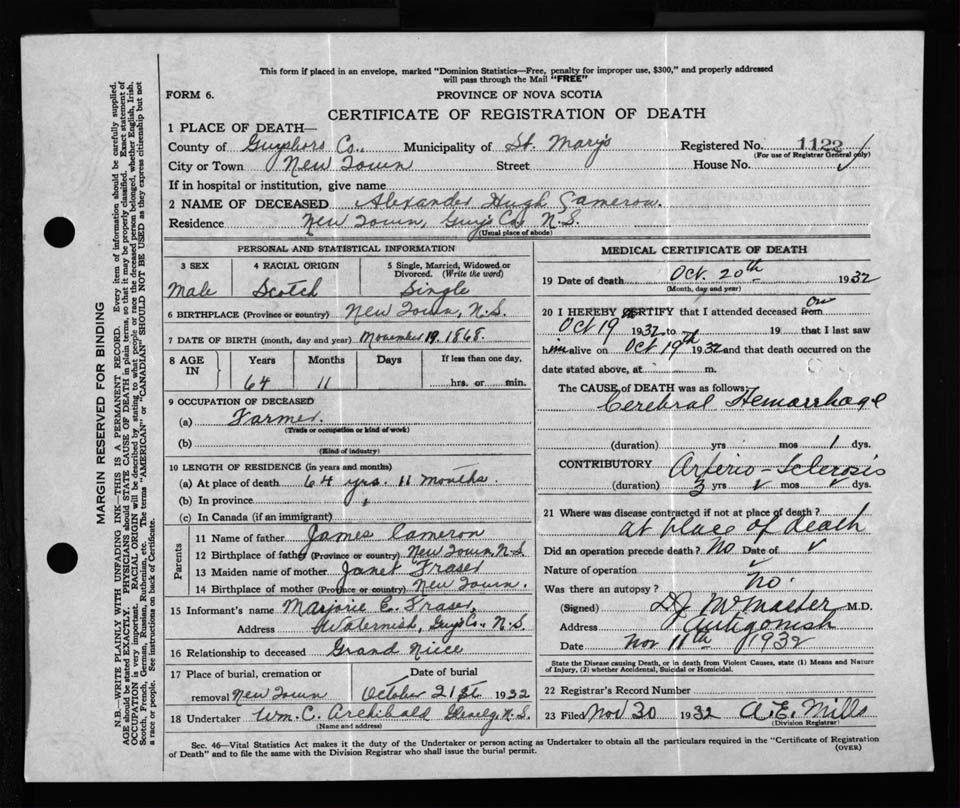 This form if placed in an envelope, marked "Dominion Statistics—Free, penalty for improper use, $300," and properly addressed
will pass through the Mail "FREE"
FORM 6.
PROVINCE OF NOVA SCOTIA
CERTIFICATE OF REGISTRATION OF DEATH
1 PLACE OF DEATH—
County of Guysboro Co. Municipality of St. Mary's Registered No. 1122
(For use of Registrar General only)
City or Town New Town Street House No.
If in hospital or institution, give name
2 NAME OF DECEASED Alexander Hugh Cameron.
Residence New Town, Guy's Co., N.S.
(Usual place of abode)
PERSONAL AND STATISTICAL INFORMATION
3 SEX 4 RACIAL ORIGIN 5 Single, Married, Widowed or
Divorced. (Write the word)
Male Scotch Single
6 BIRTHPLACE (Province or country) New Town, N.S.
7 DATE OF BIRTH (month, day and year) November 19, 1868.
8 AGE IN Years Months Days If less than one day,
64 11 hrs. or min.
9 OCCUPATION OF DECEASED
(a) Farmer.
(Trade or occupation or kind of work)
(b)
(Kind of industry)
10 LENGTH OF RESIDENCE (in years and months)
(a) At place of death 64 yrs. 11 months.
(b) In province "
(c) In Canada (if an immigrant)
Parents
11 Name of father James Cameron
12 Birthplace of father (Province or country) New Town, N.S.
13 Maiden name of mother Janet Fraser
14 Birthplace of mother (Province or country) New Town.
15 Informant's name Marjorie E. Fraser,
Address Waternish, Guy's Co., N.S.
16 Relationship to deceased Grand Niice
17 Place of burial, cremation or Date of burial
removal New Town October 21st 1932
18 Undertaker Wm. C. Archibald N.S.
(Name and address)
MEDICAL CERTIFICATE OF DEATH
19 Date of death Oct. 20th 1932
(Month, day and year)
20 I HEREBY CERTIFY that I attended deceased from on
Oct 19 1932 to 19 that I last saw
him alive on Oct 19th 1932 and that death occurred on the
date stated above, at m.
The CAUSE of DEATH was as follows:
Cerebral Hemorrhage
(duration) yrs mos 1 dys.
CONTRIBUTORY Arterio-Sclerosis
(duration) 3 yrs ✓ mos ✓ dys.
21 Where was disease contracted if not at place of death?
at place of death
Did an operation precede death? No Date of ✓
Nature of operation ✓
Was there an autopsy? no.
(Signed) DJ McMaster M.D.
Address Antigonish
Date Nov 11th 1932
State the Disease causing Death, or in death from Violent Causes, state (1) Means and Nature
of Injury, (2) whether Accidental, Suicidal or Homicidal.
22 Registrar's Record Number
23 Filed Nov 30 1932 A.E. Mills
(Division Registrar)
Sec. 46—Vital Statistics Act makes it the duty of the Undertaker or person acting as Undertaker to obtain all the particulars required in the "Certificate of Registration
of Death" and to file the same with the Division Registrar who shall issue the burial permit. (OVER)
MARGIN RESERVED FOR BINDING
N.B.—WRITE PLAINLY WITH UNFADING INK—THIS IS A PERMANENT RECORD. Every item of information should be carefully supplied.
AGE should be stated EXACTLY. PHYSICIANS should STATE CAUSE OF DEATH in plain terms, so that it may be properly classified. Exact statement of
OCCUPATION is very important. RACIAL ORIGIN will be described by stating to what people or race the deceased person belonged, whether English, Irish,
Scotch, French, German, Russian, Ruthenian, etc. The terms "AMERICAN" or "CANADIAN" SHOULD NOT BE USED as they express citizenship but not
a race or people. See instructions on back of Certificate.